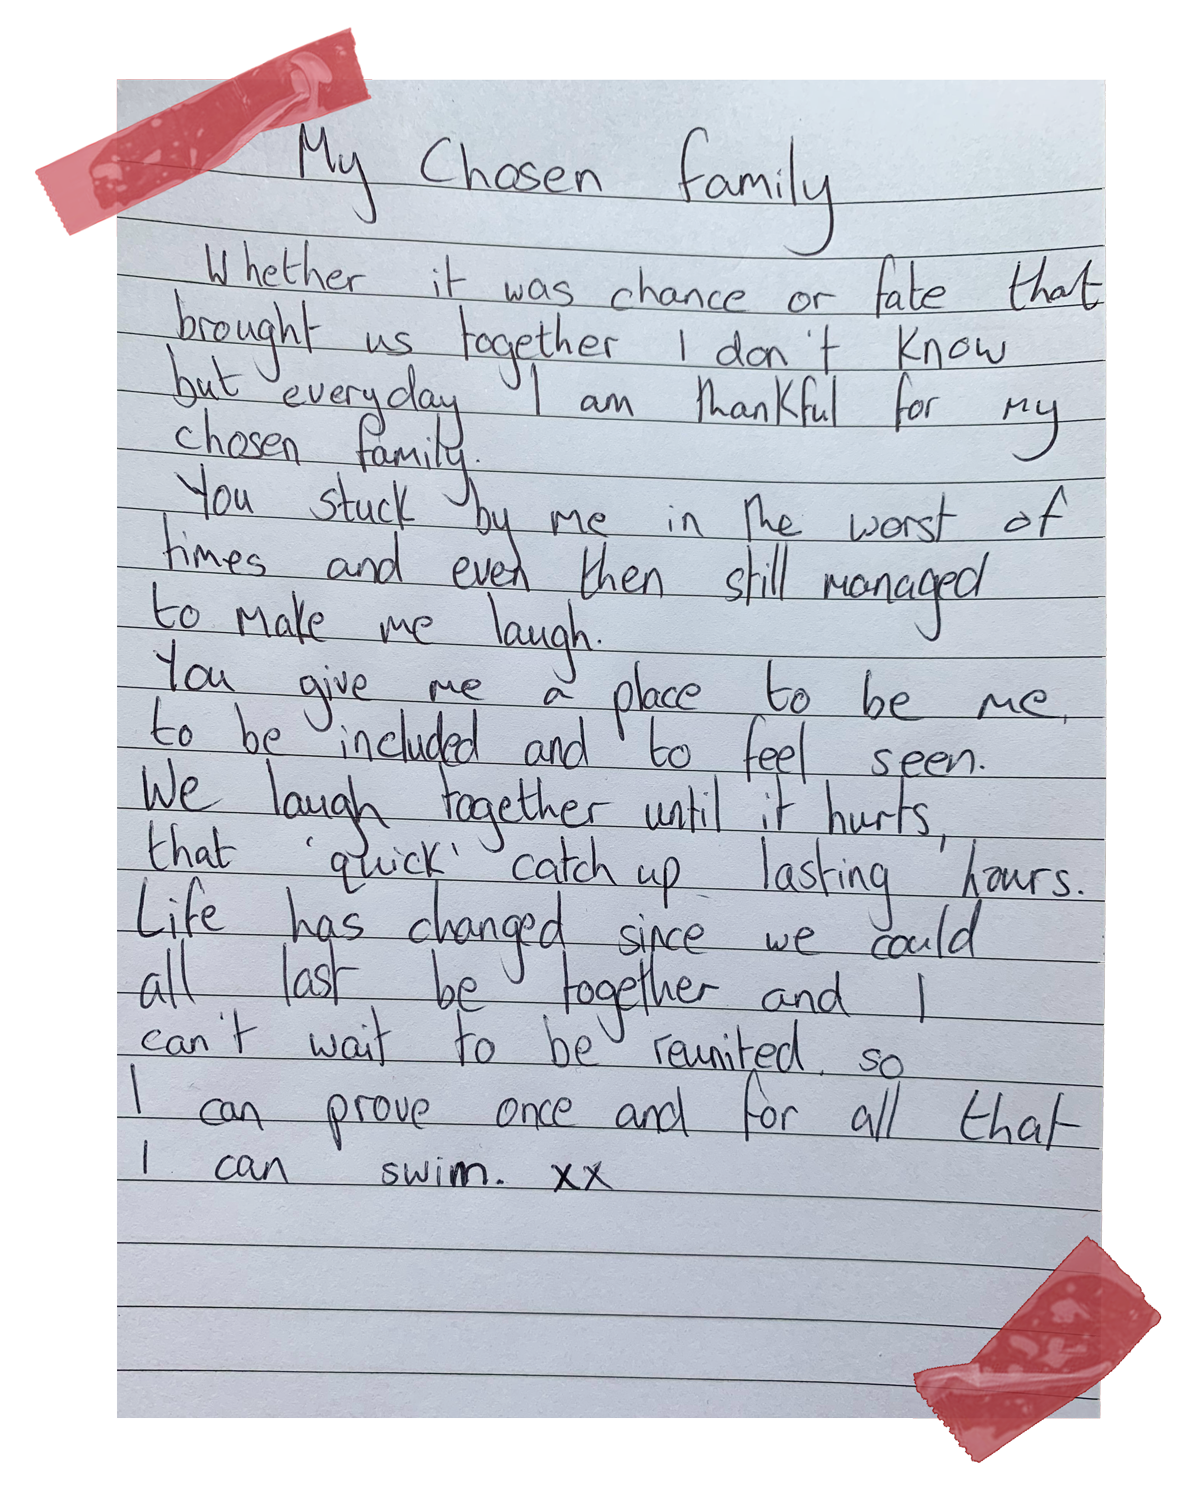 My Chosen family
Whether it was chance or fate that
brought us together I don't know
but everyday I am thankful for my
chosen family.
You stuck by me in the worst of
times and even then still managed
to make me laugh.
You give me a place to be me,
to be included and to feel seen.
We laugh together until it hurts,
that 'quick' catch up lasting hours.
Life has changed since we could
all last be together and I
can't wait to be reunited, so
I can prove once and for all that
I can swim. xx